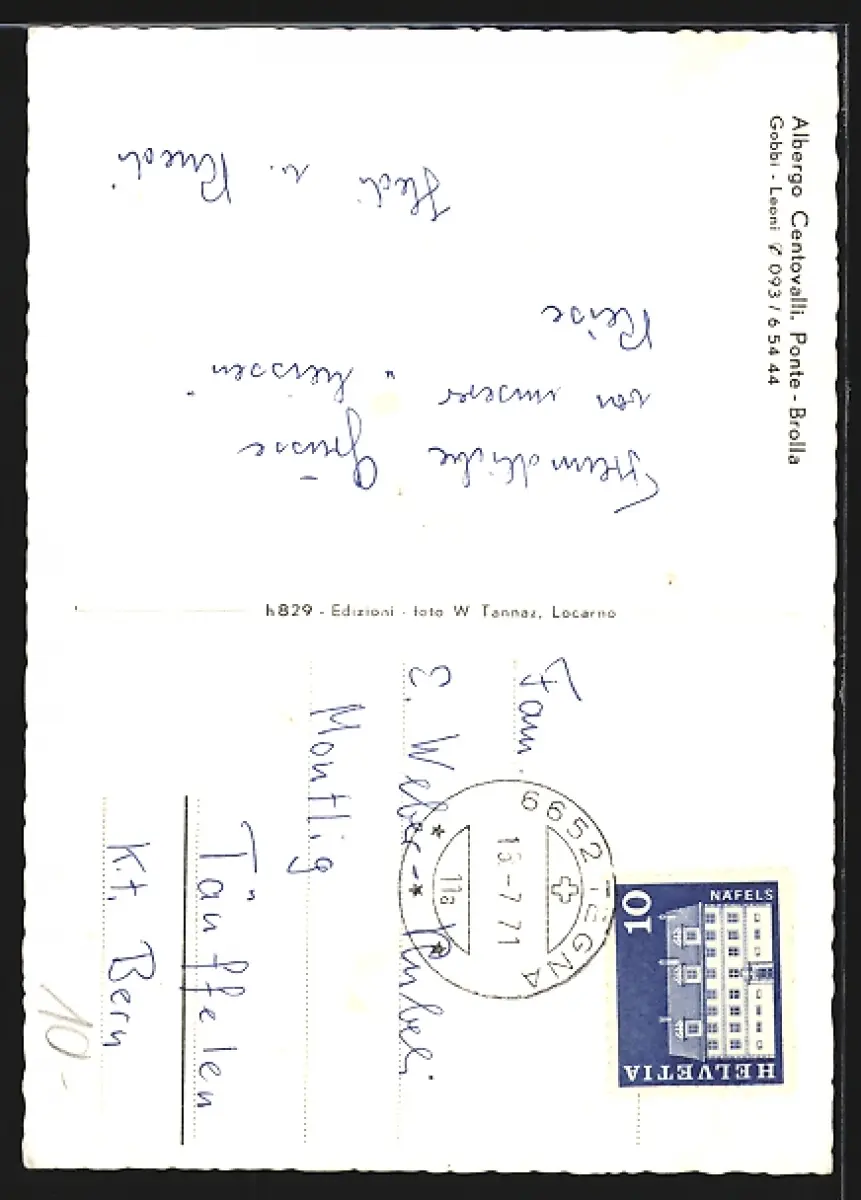 Albergo Centovalli, Ponte-Brolla
Gobbi - Leoni ✆ 093 / 6 54 44
Freundliche Grüsse
von unserer heissen
Reise
Hedi u. Ruedi
h829 - Edizioni - foto W Tannaz, Locarno
Fam.
E. Weber-Hubeli
Montlig
Täuffelen
Kt. Bern
6652 TEGNA
-7 71
11a
NÄFELS
10
HELVETIA
10-